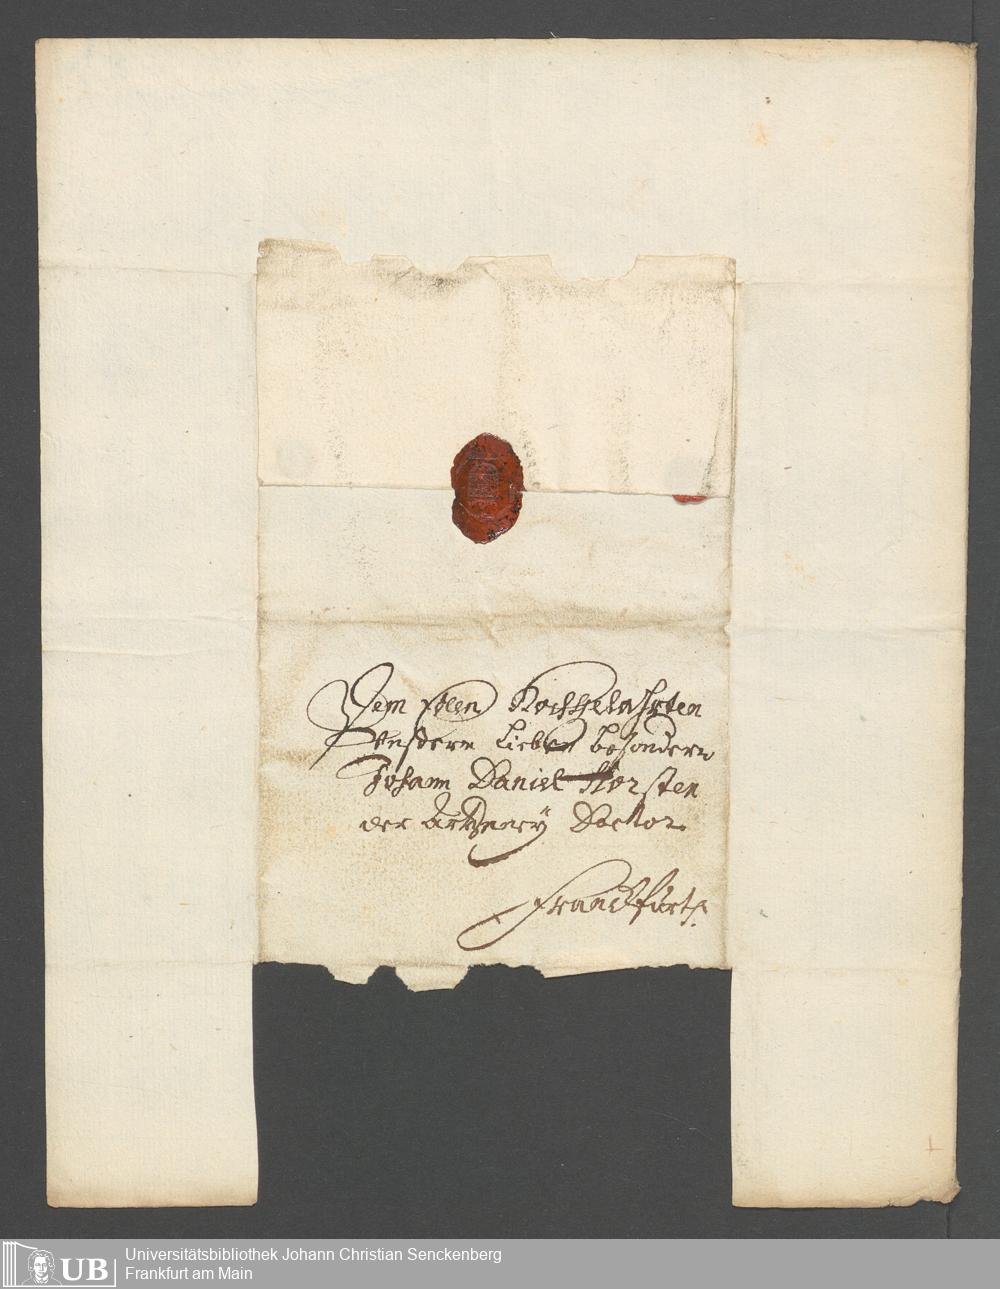 Dem Edlen Hochgelahrten
Unserm Lieben besondern
Johann Daniel Horsten
der Artzneÿ Doctor
Franckfurth.
UB
Universitätsbibliothek Johann Christian Senckenberg
Frankfurt am Main